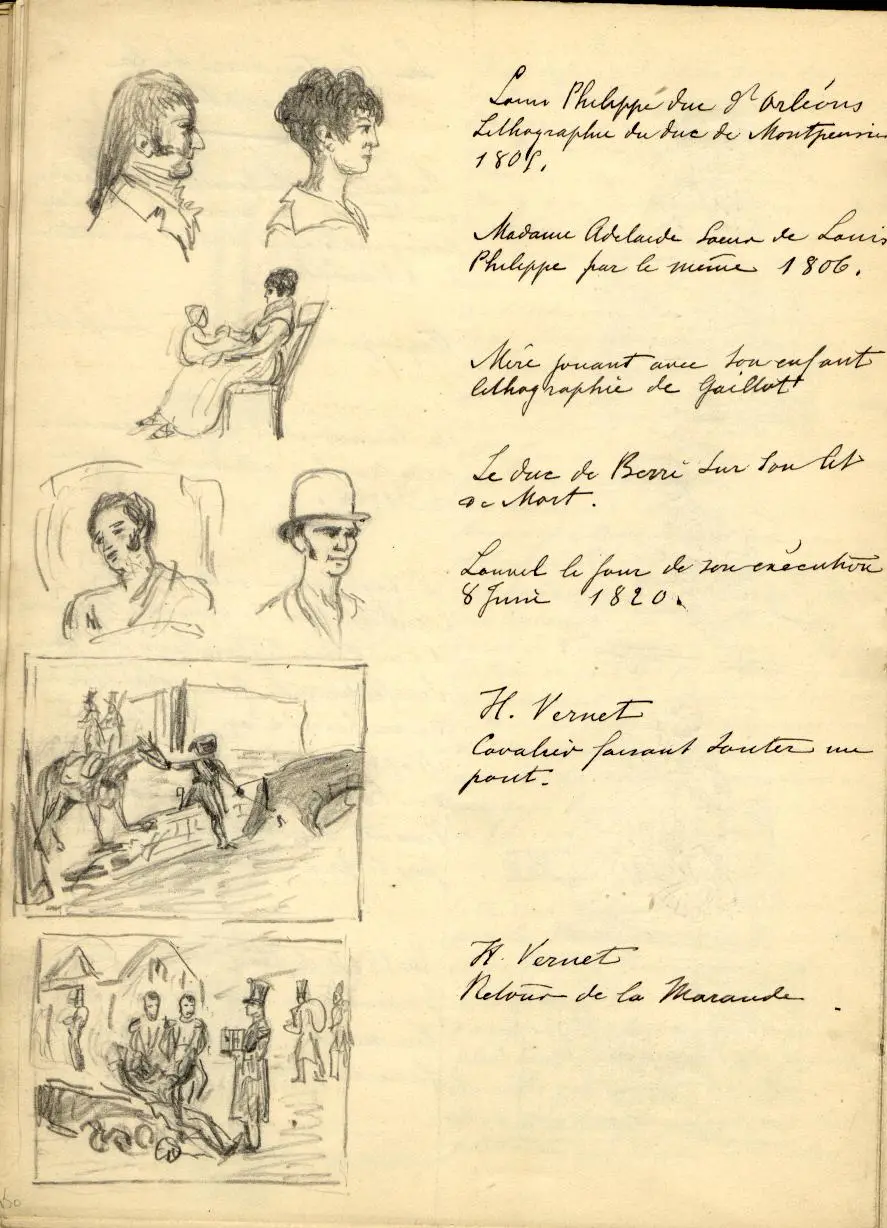 Louis Philippe duc d'Orléans
Lithographie du duc de Montpensie
1805.
Madame Adelaide Soeur de Louis
Philippe par le même 1806.
Mère jouant avec son enfant
lithographie de Gaillot
Le duc de Berri sur son lit
de Mort.
Louvel le jour de son exécution
8 Juin 1820.
H. Vernet
Cavalier faisant sauter un
pont.
H. Vernet
Retour de la Maraude